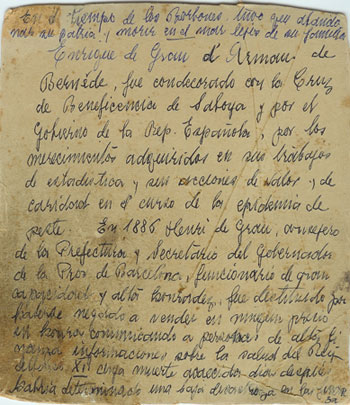 En el tiempo de los Borbones, tuvo que abando
nar su patria y morir en el mar lejos de su familia
Enrique de Grau d'Armau de
Bernède, fue condecorado con la Cruz
de Beneficencia de Saboya y por el
Gobierno de la Rep. Española, por los
merecimientos adquiridos en sus trabajos
de estadistica y sus acciones de valor y de
caridad en el curso de la epidemia de
peste. En 1886 Henri de Grau, consejero
de la Prefectura y Secretario del Gobernador
de la Prov de Barcelona, funcionario de gran
capacidad y alta honradez, fue destituido por
haberse negado a vender en ningun precio
su honra comunicando a personas de altas fi
nanzas informaciones sobre la salud del Rey
XII cuya muerte acaecida dias después
habria determinado una baja desastrosa en las